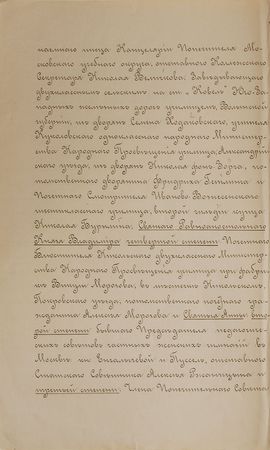 наемнаго лица Канцеляріи Попечителя Мо-
сковскаго учебнаго округа, отставнаго Коллежскаго
Секретаря Николая Величкова; Завѣдывающаго
двухкласснымъ сельскимъ на ст. „Ковель" Юго-За-
падныхъ желѣзныхъ дорогъ училищемъ, Волынской
губерніи, изъ дворянъ Семена учителя
однокласснаго народнаго Министер-
ства Народнаго Просвѣщенія училища, Александрій-
скаго уѣзда, изъ дворянъ Николая фонъ-
потомственнаго дворянина Фридриха и
Почетнаго Смотрителя Ивано-Вознесенскаго
училища, второй гильдіи купца
Николая Буркина; Святаго Равноапостольнаго
Князя Владиміра четвертой степени: Почетнаго
Блюстителя двухкласснаго Министер-
ства Народнаго Просвѣщенія училища при фабрикѣ
Викулы Морозова, въ мѣстечкѣ Никольскомъ,
Покровскаго уѣзда, потомственнаго почетнаго граж-
данина Алексѣя Морозова и Святыя Анны: вто-
рой степени: бывшаго Предсѣдателя педагогиче-
скихъ совѣтовъ частныхъ женскихъ гимназій въ
Москвѣ: и Пуссель, отставнаго
Статскаго Совѣтника Алексѣя и
третьей степени: Члена Попечительнаго Совѣта